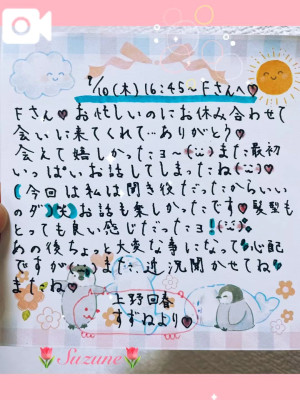 9/10(木)16:45~Fさんへ♥
Fさん♥お忙しいのにお休み合わせて
会いに来てくれて…ありがとう♥
会えて嬉しかったヨ~(¨)また最初
いっぱいお話してしまったね(¨)
(今回は私は聞き役だったからいい
のダ)(笑)お話も楽しかったです♥髪型も
とっても良い感じだったヨ!(¨)
あの後ちょっと大変な事になって心配
ですが…また、近況聞かせてね
またね♥
上野回春
すずねより♥
Suzune